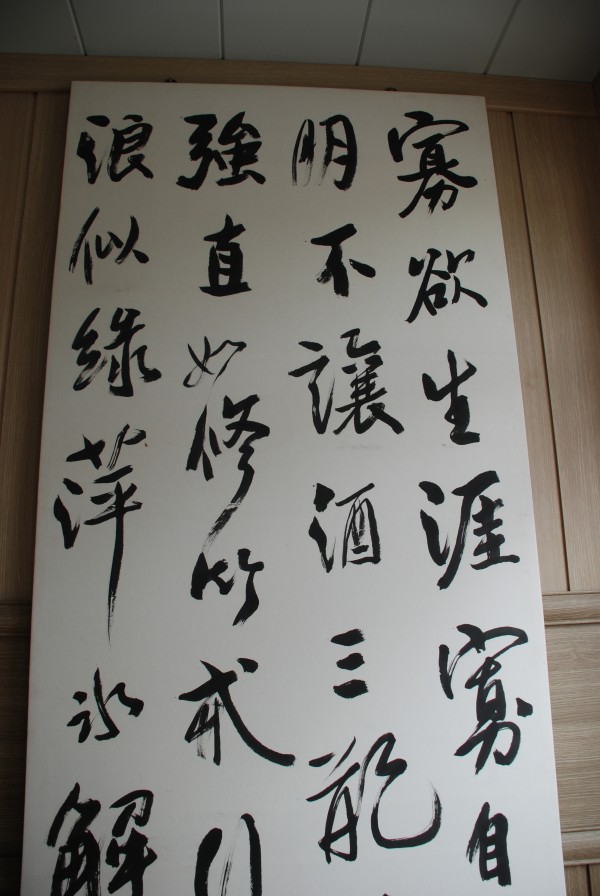 寡欲生涯寡自
明不讓酒三瓶
強直如修竹
浪似綠萍冰解